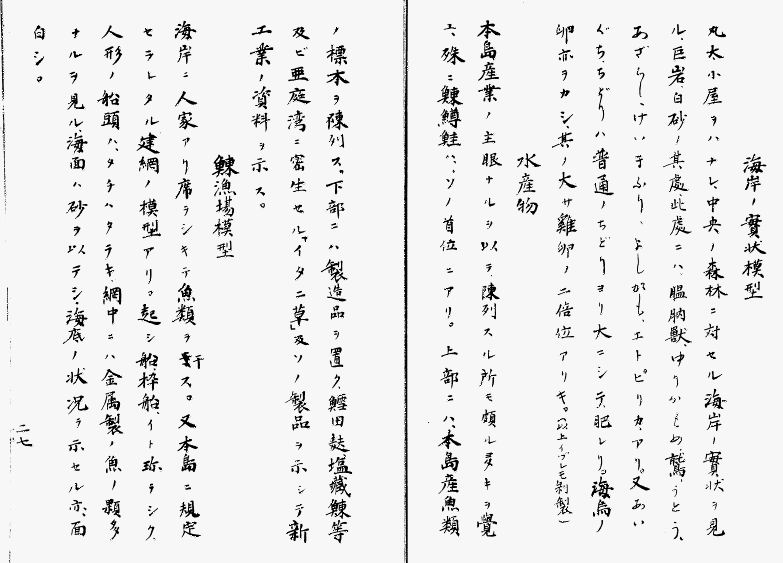 海岸ノ實状模型
丸太小屋ヲハナレ、中央ノ森林ニ対セル海岸ノ實状ヲ見
ル、巨岩、白砂ノ其處此處ニハ、膃肭獣、ゆりかもめ、鷲、うとう、
あざらし、けいまふり、よしがも、エトピリカ、アリ。又あい
ぐち、ちどりハ普通ノちどりヨリ大ニシテ、肥レリ。海鳥ノ
卵亦ヲカシ、其ノ大サ雞卵ノ二倍位アリキ。(以上イヅレモ剥製)
水産物
本島産業ノ主眼ナルヲ以テ、陳列スル所モ頗ル多キヲ覺
エ、殊ニ鰊鱒鮭ハ、ソノ首位ニアリ。上部ニハ、本島産魚類
ノ標本ヲ陳列ス。下部ニハ製造品ヲ置ク、鱈田麩、塩藏鰊等
及ビ亜庭湾ニ密生セル「イタニ草」及ソノ製品ヲ示シテ新
工業ノ資料ヲ示ス。
鰊漁場模型
海岸ニ人家アリ席ヲシキテ魚類ヲ干ス。又本島ニ規定
セラレタル建網ノ模型アリ。起シ船枠船、イト珍ラシク、
人形ノ船頭ハ、タチハタラキ網中ニハ金属製ノ魚ノ顆多
ナルヲ見ル、海面ハ砂ヲ以テシ、海底ノ状況ヲ示セル亦、面
白シ。
二七